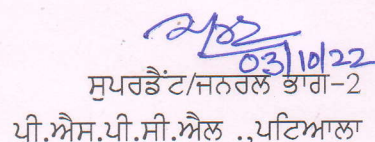 03/10/22
ਸੁਪਰਡੈਂਟ/ਜਨਰਲ ਭਾਗ-2
ਪੀ.ਐਸ.ਪੀ.ਸੀ.ਐਲ .,ਪਟਿਆਲਾ